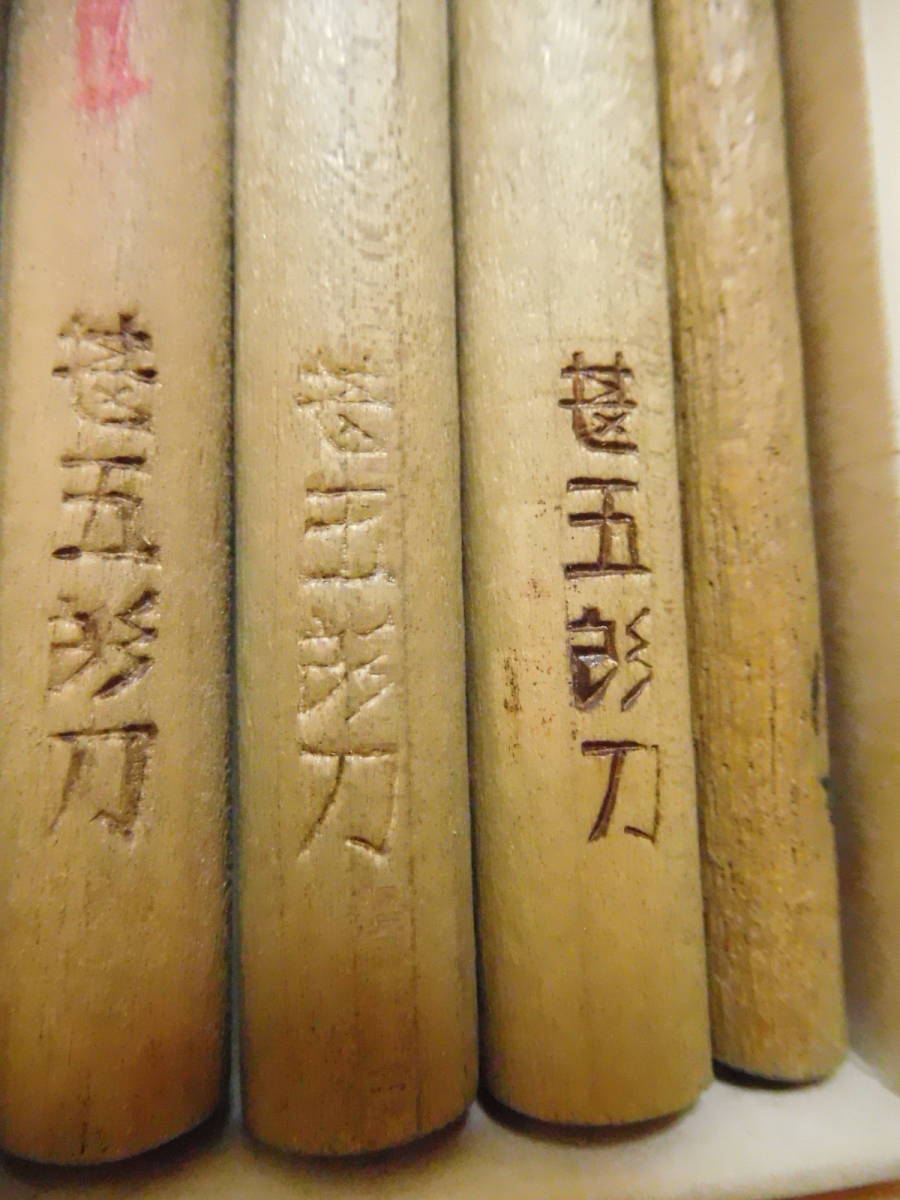 甚五郎刀
甚五郎刀
甚五郎刀